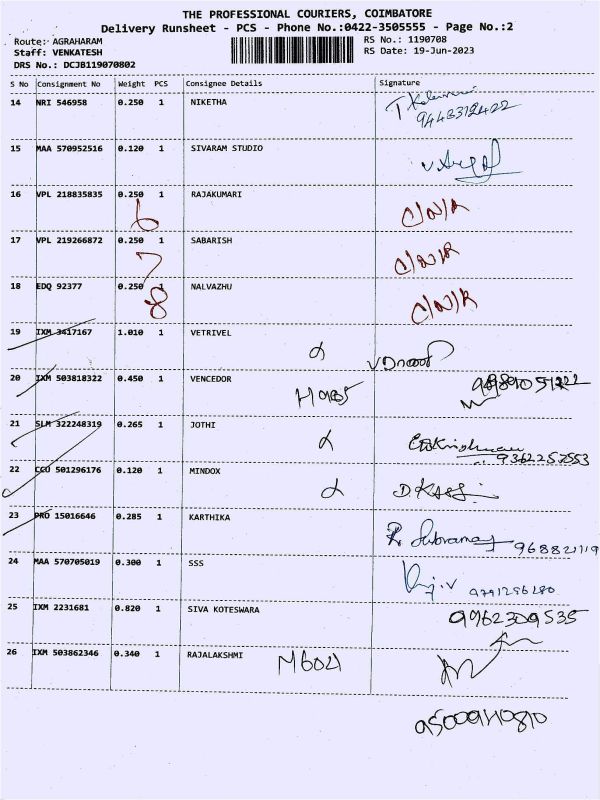 THE PROFESSIONAL COURIERS, COIMBATORE
Delivery Runsheet - PCS - Phone No.:0422-3505555 - Page No.:2
Route: AGRAHARAM
Staff: VENKATESH
DRS No.: DCJB119070802
RS No.: 1190708
RS Date: 19-Jun-2023
S No Consignment No Weight PCS Consignee Details Signature
14 NRI 546958 0.250 1 NIKETHA
9443312422
15 MAA 570952516 0.120 1 SIVARAM STUDIO
16 VPL 218835835 0.250 1 RAJAKUMARI C/N/R
6
17 VPL 219266872 0.250 1 SABARISH C/N/R
7
18 EDQ 92377 0.250 1 NALVAZHU C/N/R
8
19 IXM 3417167 1.010 1 VETRIVEL
20 IXM 503818322 0.450 1 VENCEDOR
21 SLM 322248319 0.265 1 JOTHI
9362257553
22 CCU 501296176 0.120 1 MINDOX
23 PRO 15016646 0.285 1 KARTHIKA
24 MAA 570705019 0.300 1 SSS
9791296280
25 IXM 2231681 0.820 1 SIVA KOTESWARA
9962309535
26 IXM 503862346 0.340 1 RAJALAKSHMI M6021